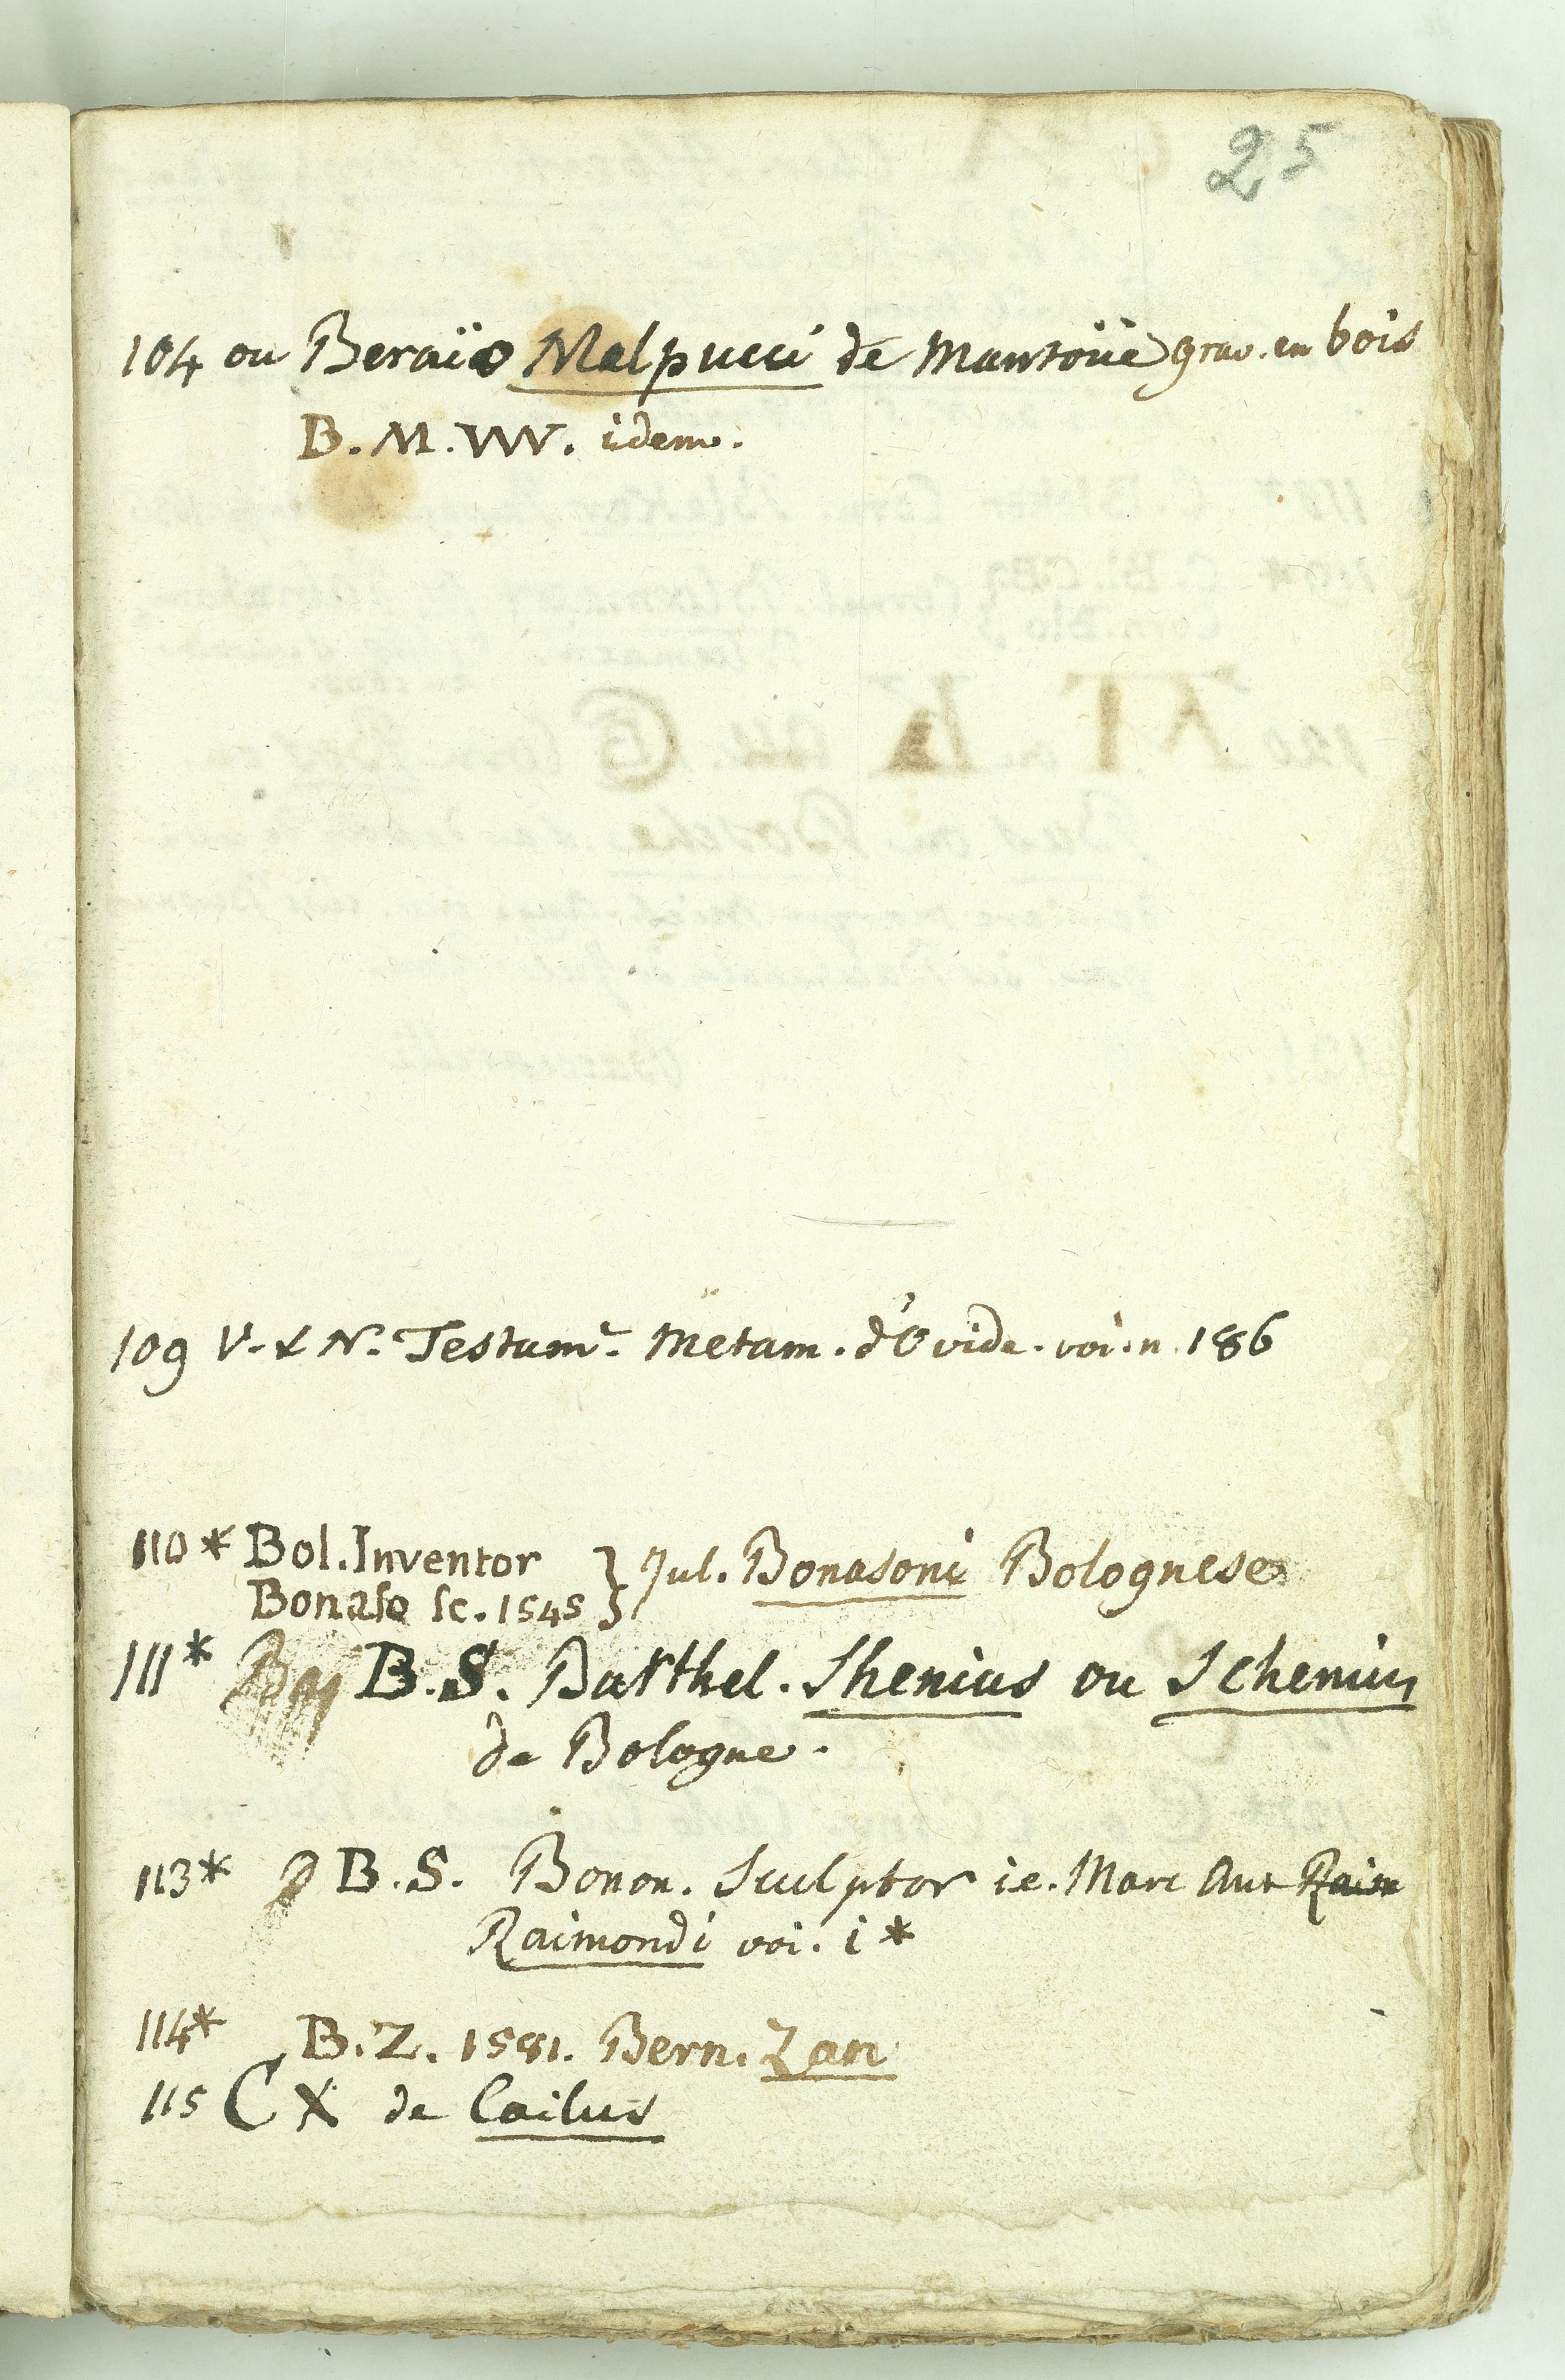 25
104 ou Beraïo Malpucci de Mantoüe grav. en bois
B. M. VVV. idem.
109 V. & N. Testam.t Metam. d'Ovide. voi. n. 186
110* Bol. Inventor } Jul. Bonasoni Bolognese
Bonaso sc. 1545
111* B. S. Barthel. Shenius ou Schenius
de Bologne.
113* B. S. Bonon. Sculptor i.e. Marc Ant Raim
Raimondi voi. i*
114* B. Z. 1581. Bern. Zan
115 C X de Cailus